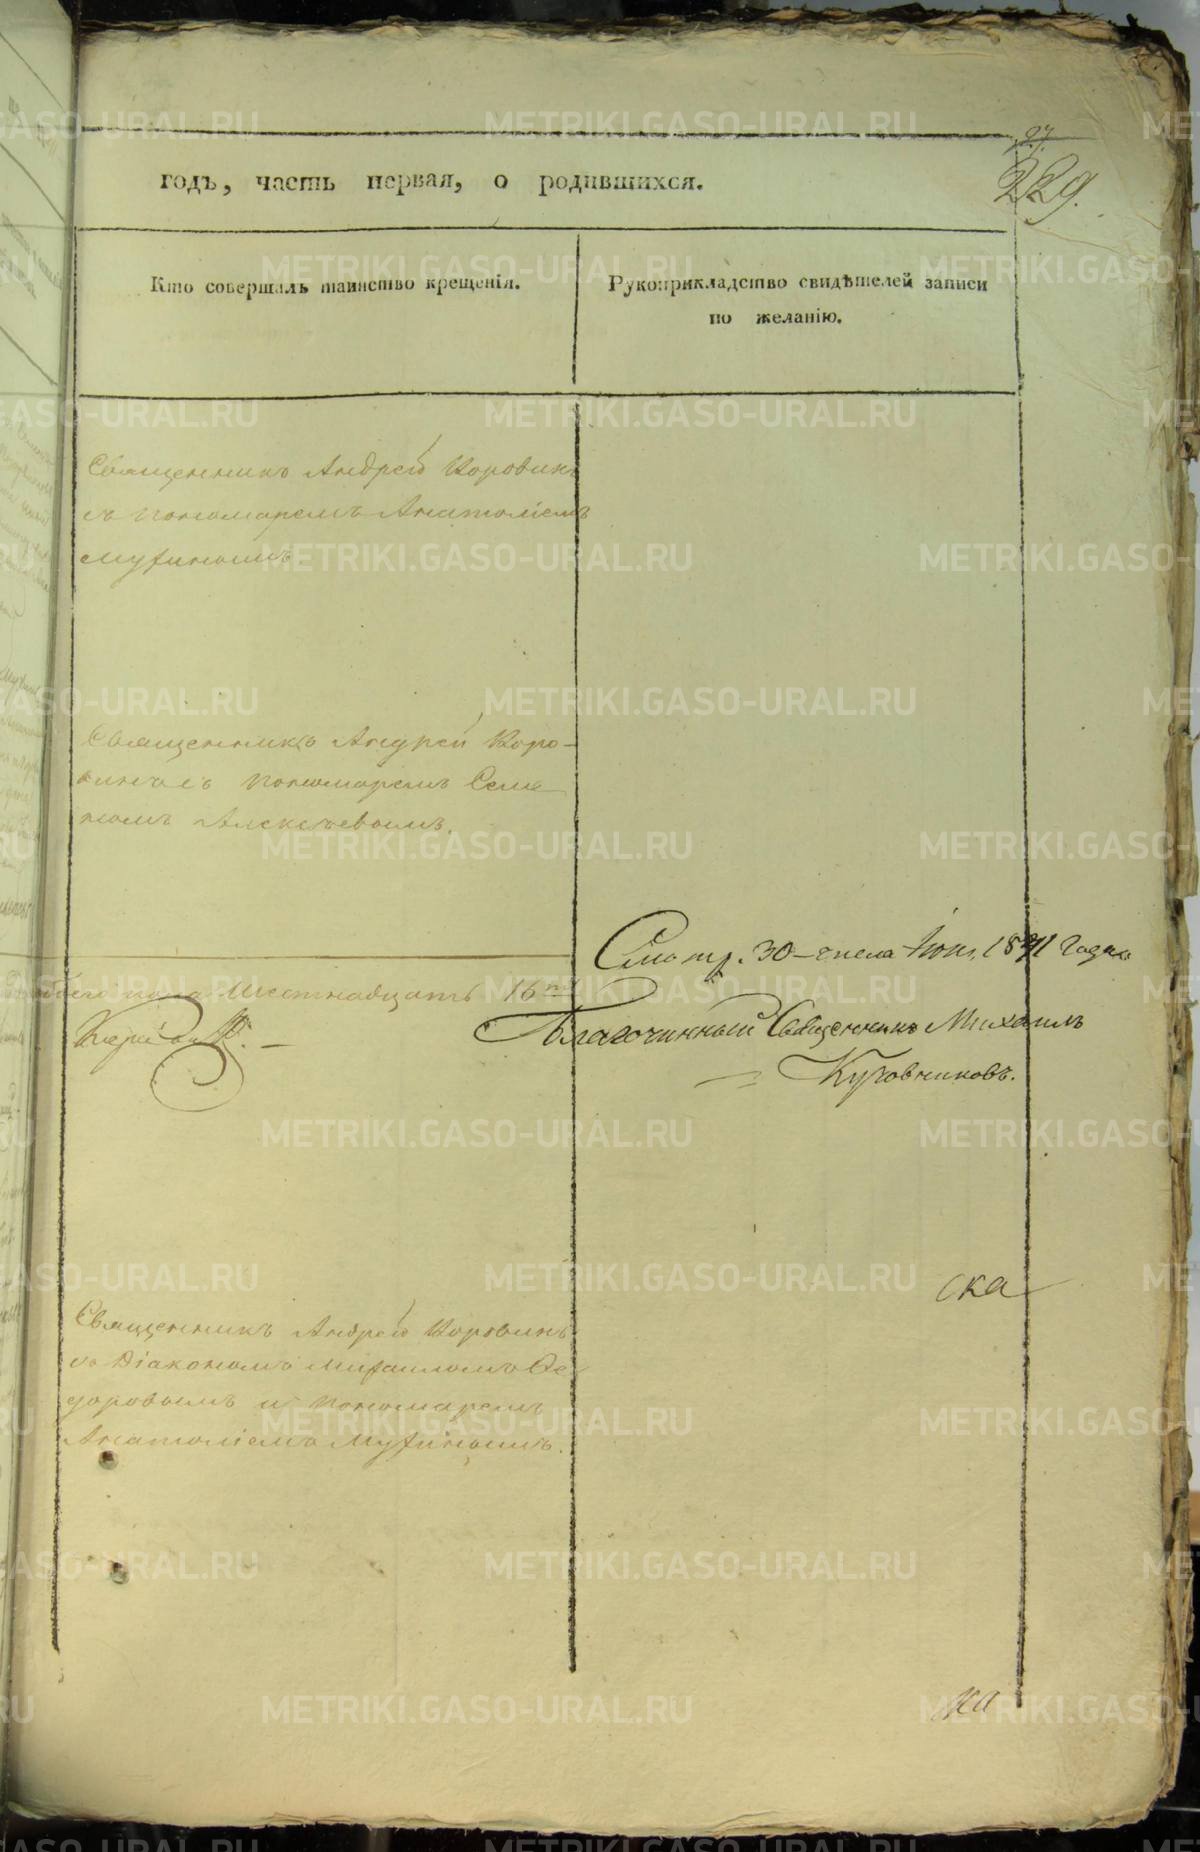 27.
229.
годъ, часть первая, о родившихся.
Кто совершалъ таинство крещенія.
Рукоприкладство свидѣтелей записи
по желанію.
Священникъ Андрей Коровинъ
съ пономаремъ Анатоліемъ
Священникъ Андрей Коро-
винъ съ пономаремъ Семе
номъ Алексѣевымъ.
Смотр. 30-числа Іюн. 1841 года
обоего пола Шестнадцать 16
Благочинный Священникъ Михаилъ
Священникъ Андрей Коровинъ
съ Діакономъ Михаиломъ Ѳе
доровымъ и пономаремъ
Анатоліемъ
ска
METRIKI.GASO-URAL.RU